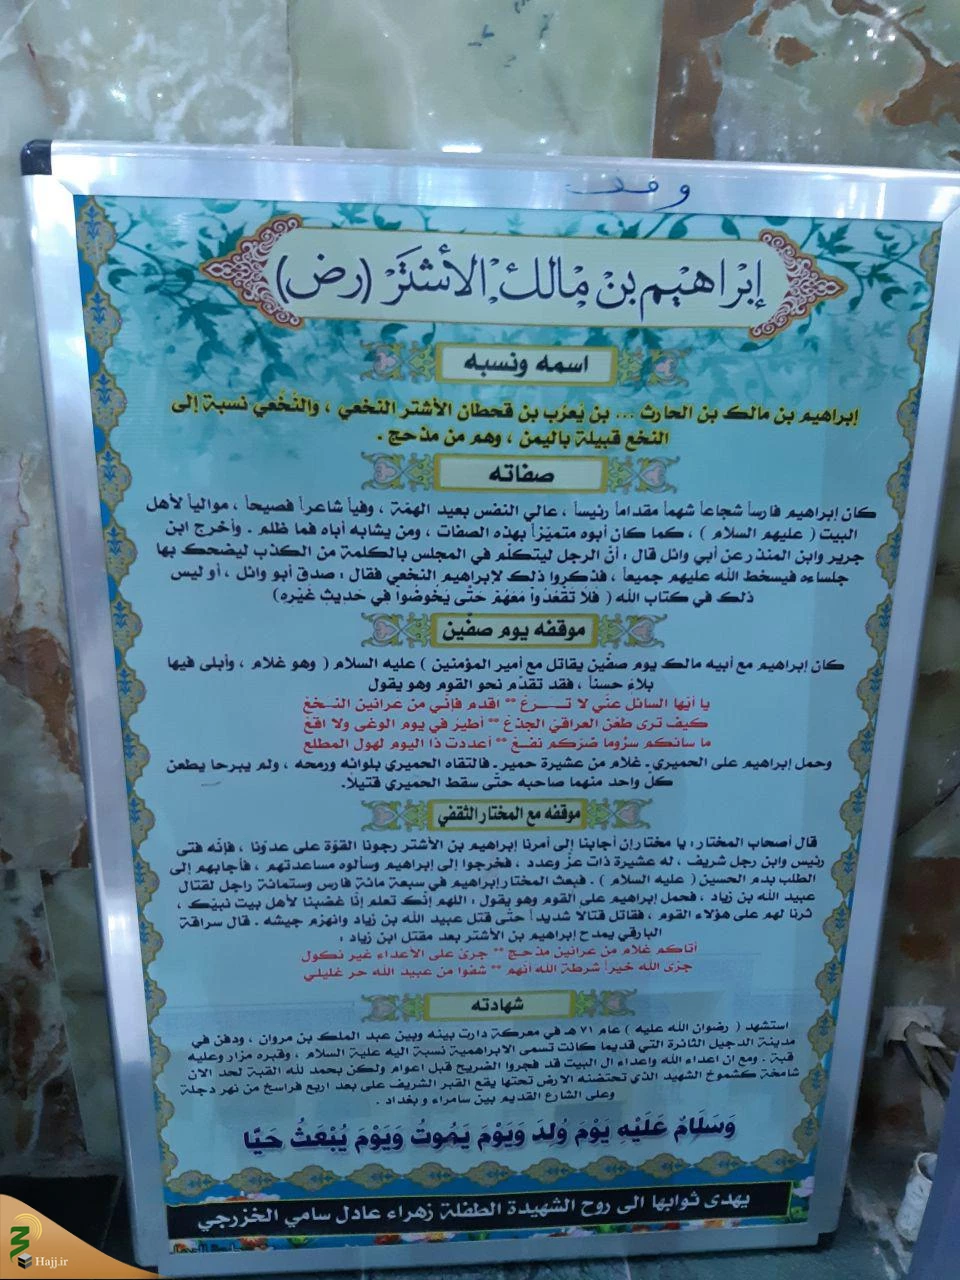 وقف
إبراهيم بن مالك الأشتر (رض)
اسمه ونسبه
إبراهيم بن مالك بن الحارث ... بن يَعرُب بن قحطان الأشتر النخعي ، والنُخعي نسبة إلى
النخع قبيلة باليمن ، وهم من مذحج .
صفاته
كان إبراهيم فارساً شجاعاً شهماً مقداماً رئيساً ، عالي النفس بعيد الهمّة ، وفياً شاعراً فصيحاً ، موالياً لأهل
البيت ( عليهم السلام ) ، كما كان أبوه متميّزاً بهذه الصفات ، ومن يشابه أباه فما ظلم . وأخرج ابن
جرير وابن المنذر عن أبي وائل قال : أنَّ الرجل ليتكلّم في المجلس بالكلمة من الكذب ليضحك بها
جلساءه فيسخط الله عليهم جميعاً ، فذكروا ذلك لإبراهيم النخعي فقال : صدق أبو وائل ، أو ليس
ذلك في كتاب الله ( فَلاَ تَقْعُدُواْ مَعَهُمْ حَتَّى يَخُوضُواْ فِي حَدِيثٍ غَيْرِهِ)
موقفه يوم صفّين
كان إبراهيم مع أبيه مالك يوم صفّين يقاتل مع أمير المؤمنين ) عليه السلام ( وهو غلام ، وأبلى فيها
بلاءً حسناً ، فقد تقدّم نحو القوم وهو يقول
يا أيّها السائل عنّي لا تـــرع ** اقدم فإنّي من عرانين النـخع
كيف ترى طعن العراقيّ الجذع ** أطير في يوم الوغى ولا اقع
ما سائكم سرّوما ضرّكم نفع ** أعددت ذا اليوم لهول المطلع
وحمل إبراهيم على الحميري ـ غلام من عشيرة حمير ـ فالتقاه الحميري بلوائه ورمحه ، ولم يبرحا يطعن
كلّ واحد منهما صاحبه حتّى سقط الحميري قتيلاً.
موقفه مع المختار الثقفي
قال أصحاب المختار : يا مختار إن أجابنا إلى أمرنا إبراهيم بن الأشتر رجونا القوّة على عدوّنا ، فإنّه فتى
رئيس وابن رجل شريف ، له عشيرة ذات عزّ وعدد ، فخرجوا إلى إبراهيم وسألوه مساعدتهم ، فأجابهم إلى
الطلب بدم الحسين ( عليه السلام ) . فبعث المختار إبراهيم في سبعة مائة فارس وستمائة راجل لقتال
عبيد الله بن زياد ، فحمل إبراهيم على القوم وهو يقول : اللهم إنّك تعلم إنّا غضبنا لأهل بيت نبيّك ،
ثرنا لهم على هؤلاء القوم ، فقاتل قتالا شديداً حتّى قتل عبيد الله بن زياد وانهزم جيشه . قال سراقة
البارقي يمدح إبراهيم بن الأشتر بعد مقتل ابن زياد :
أتاكم غلام من عرانين مذحج ** جرئ على الأعداء غير نكول
جزى الله خيراً شرطة الله أنهم ** شفوا من عبيد الله حر غليلي
شهادته
استشهد ( رضوان الله عليه ) عام ٧١ هـ في معركة دارت بينه وبين عبد الملك بن مروان ، ودفن في
مدينة الدجيل الثائرة التي قديما كانت تسمى الابراهمية نسبة اليه علية السلام ، وقبره مزار وعليه
قبة . ومع ان اعداء الله واعداء ال البيت قد فجروا الضريح قبل اعوام ولكن بحمد لله القبة لحد الان
شامخة كشموخ الشهيد الذي تحتضنه الارض تحتها يقع القبر الشريف على بعد اربع فراسخ من نهر دجلة
وعلى الشارع القديم بين سامراء و بغداد .
وَسَلَامٌ عَلَيْهِ يَوْمَ وُلِدَ وَيَوْمَ يَمُوتُ وَيَوْمَ يُبْعَثُ حَيًّا
يهدى ثوابها الى روح الشهيدة الطفلة زهراء عادل سامي الخزرجي
Hajj.ir